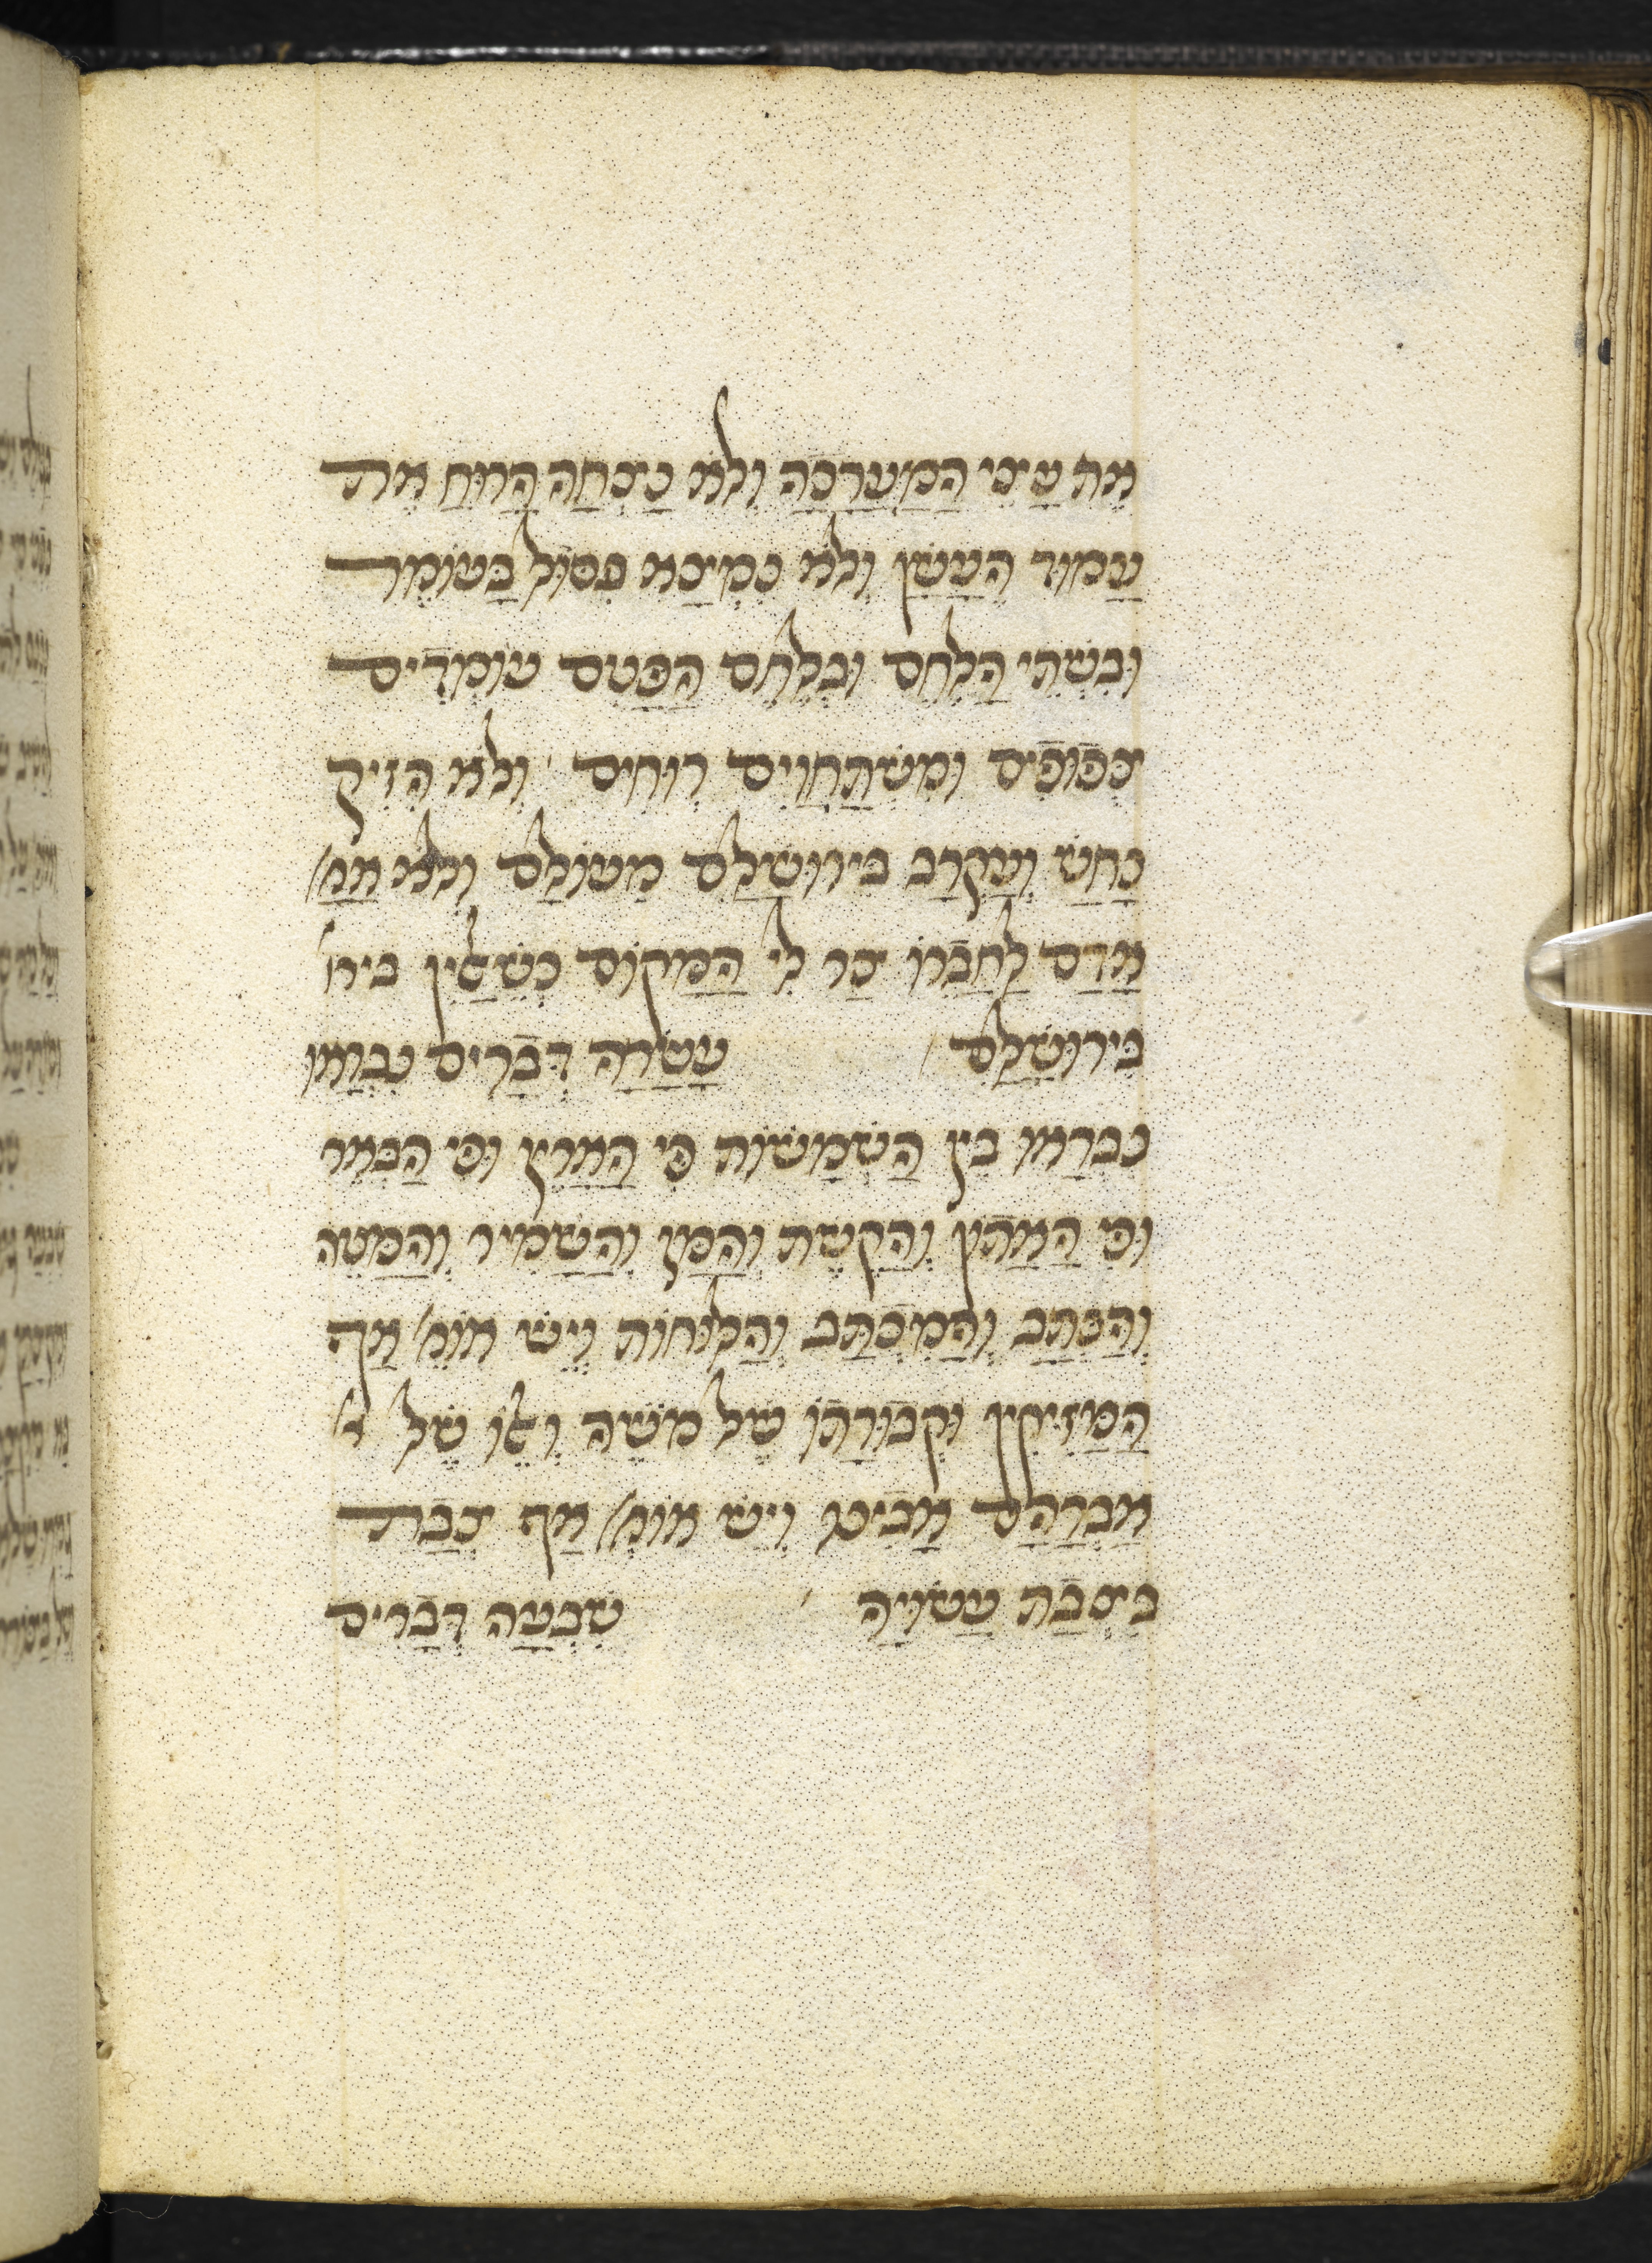 את עצי המערכה ולא נצחה הרוח את
עמוד העשן ולא נמצא פסול בעומר
ובשתי הלחם ובלחם הפנים עומדים
צפופים ומשתחוים רוחים ולא הזיק
נחש ועקרב בירושלם מעולם ולא אמ'
אדם לחברו צר לי המקום כשאלין בירו'
בירושלם עשרה דברים נבראו
נבראו בין השמשות פי הארץ ופי הבאר
ופי האתון והקשת והמן והשמיר והמטה
והכתב והמכתב והלוחות ויש אומ' אף
המזיקין וקבורתו של משה ואלו של א'
אברהם אבינו ויש אומ' אף צבת
בצבת עשויה שבעה דברים